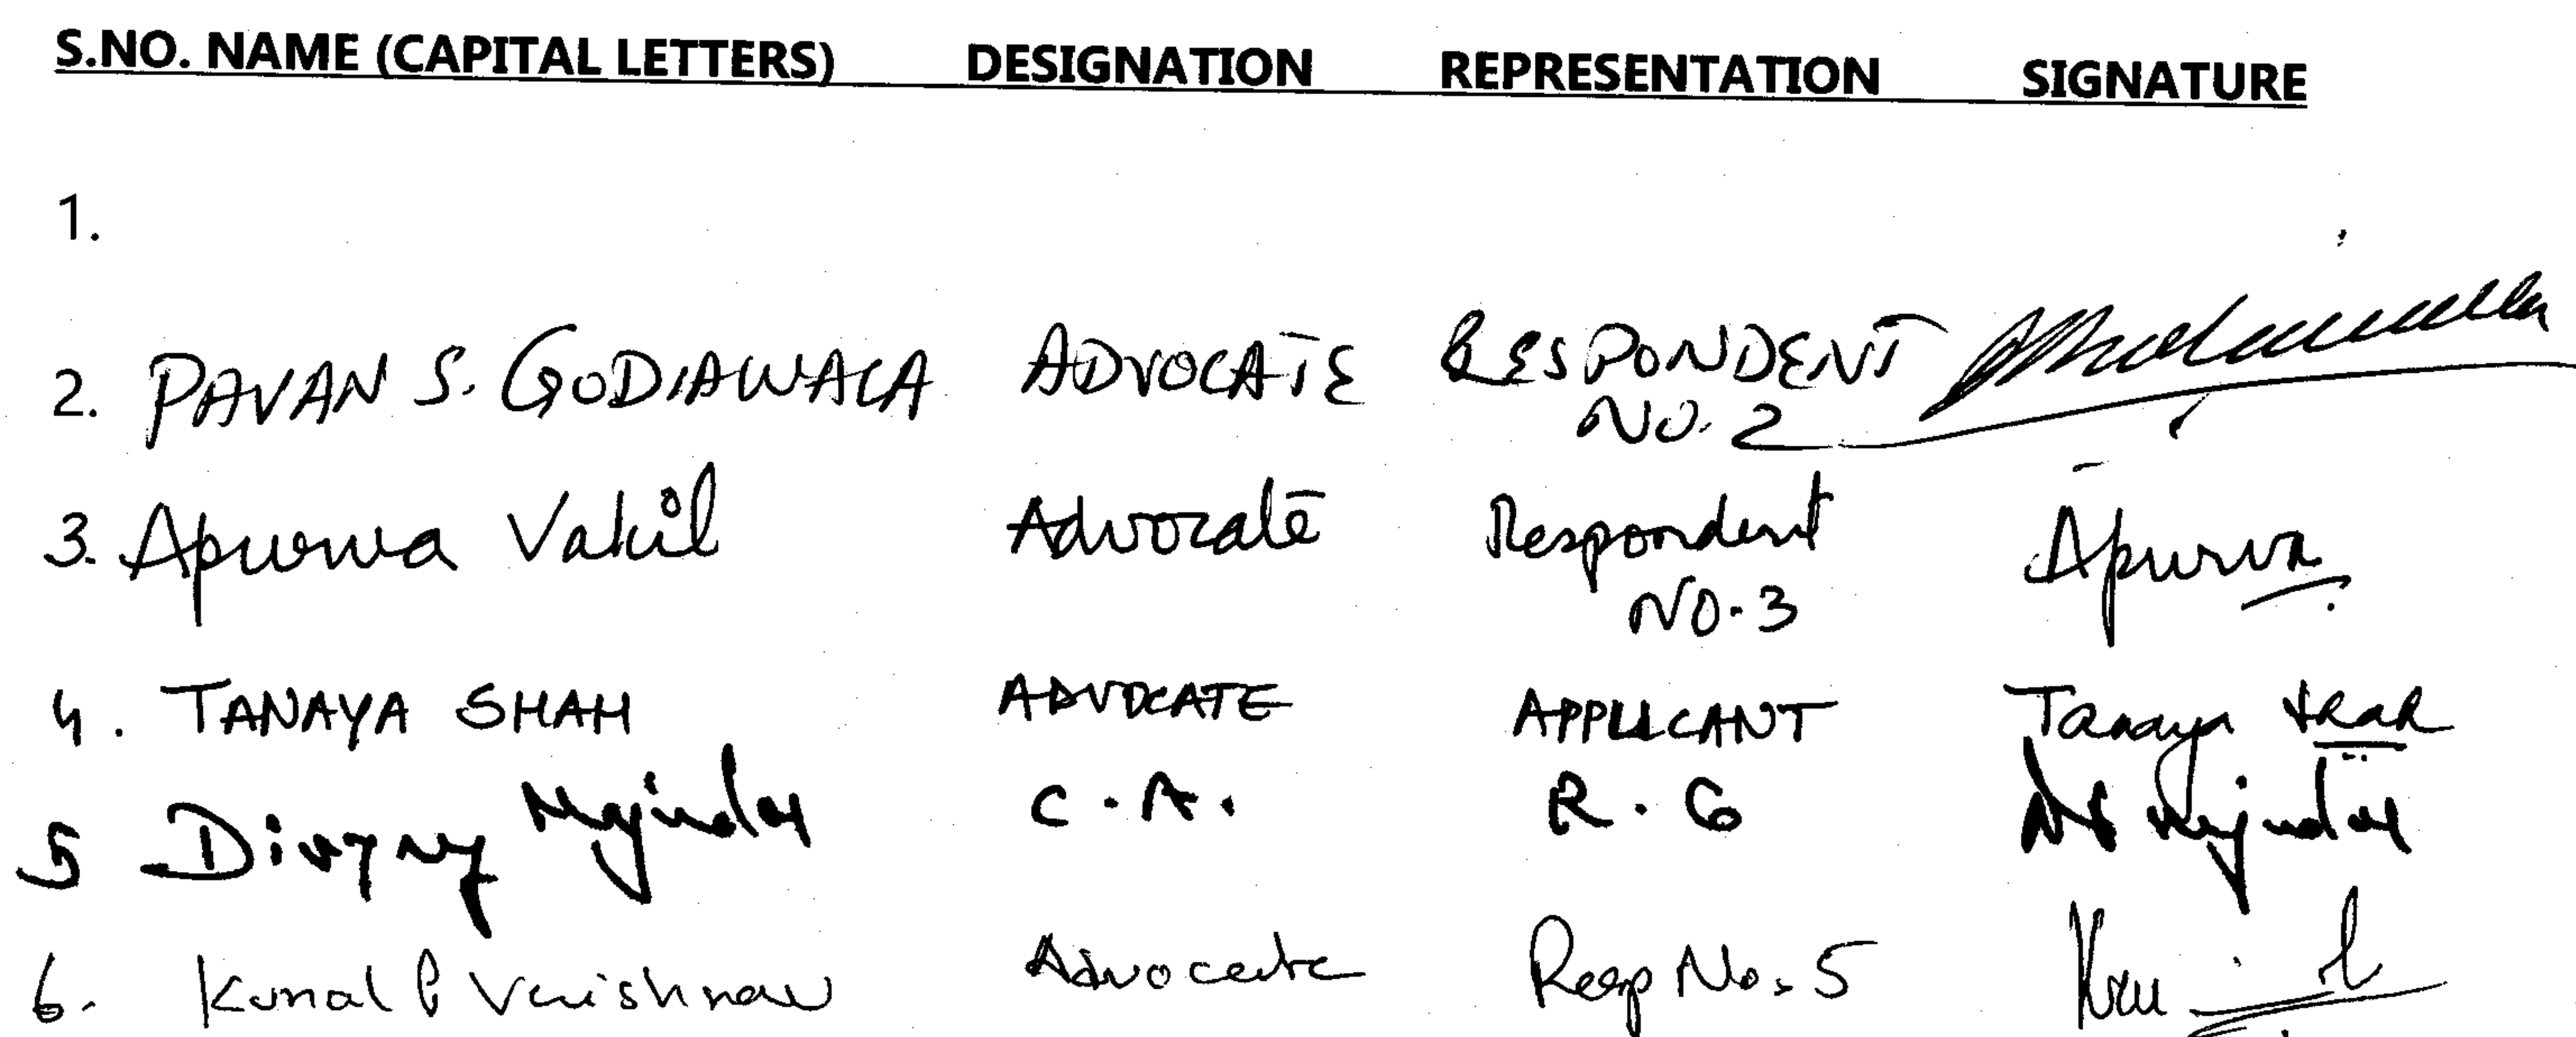 S.NO. NAME (CAPITAL LETTERS) DESIGNATION REPRESENTATION SIGNATURE
1.
2. PAVAN S. GODIAWALA ADVOCATE RESPONDENT
NO. 2
3. Apurva Vakil Advocate Respondent Apurva
NO. 3
4. TANAYA SHAH ADVOCATE APPLICANT Tanaya Shah
5 C. A. R. 6
6. Kunal P Vaishnav Advocate Resp No. 5